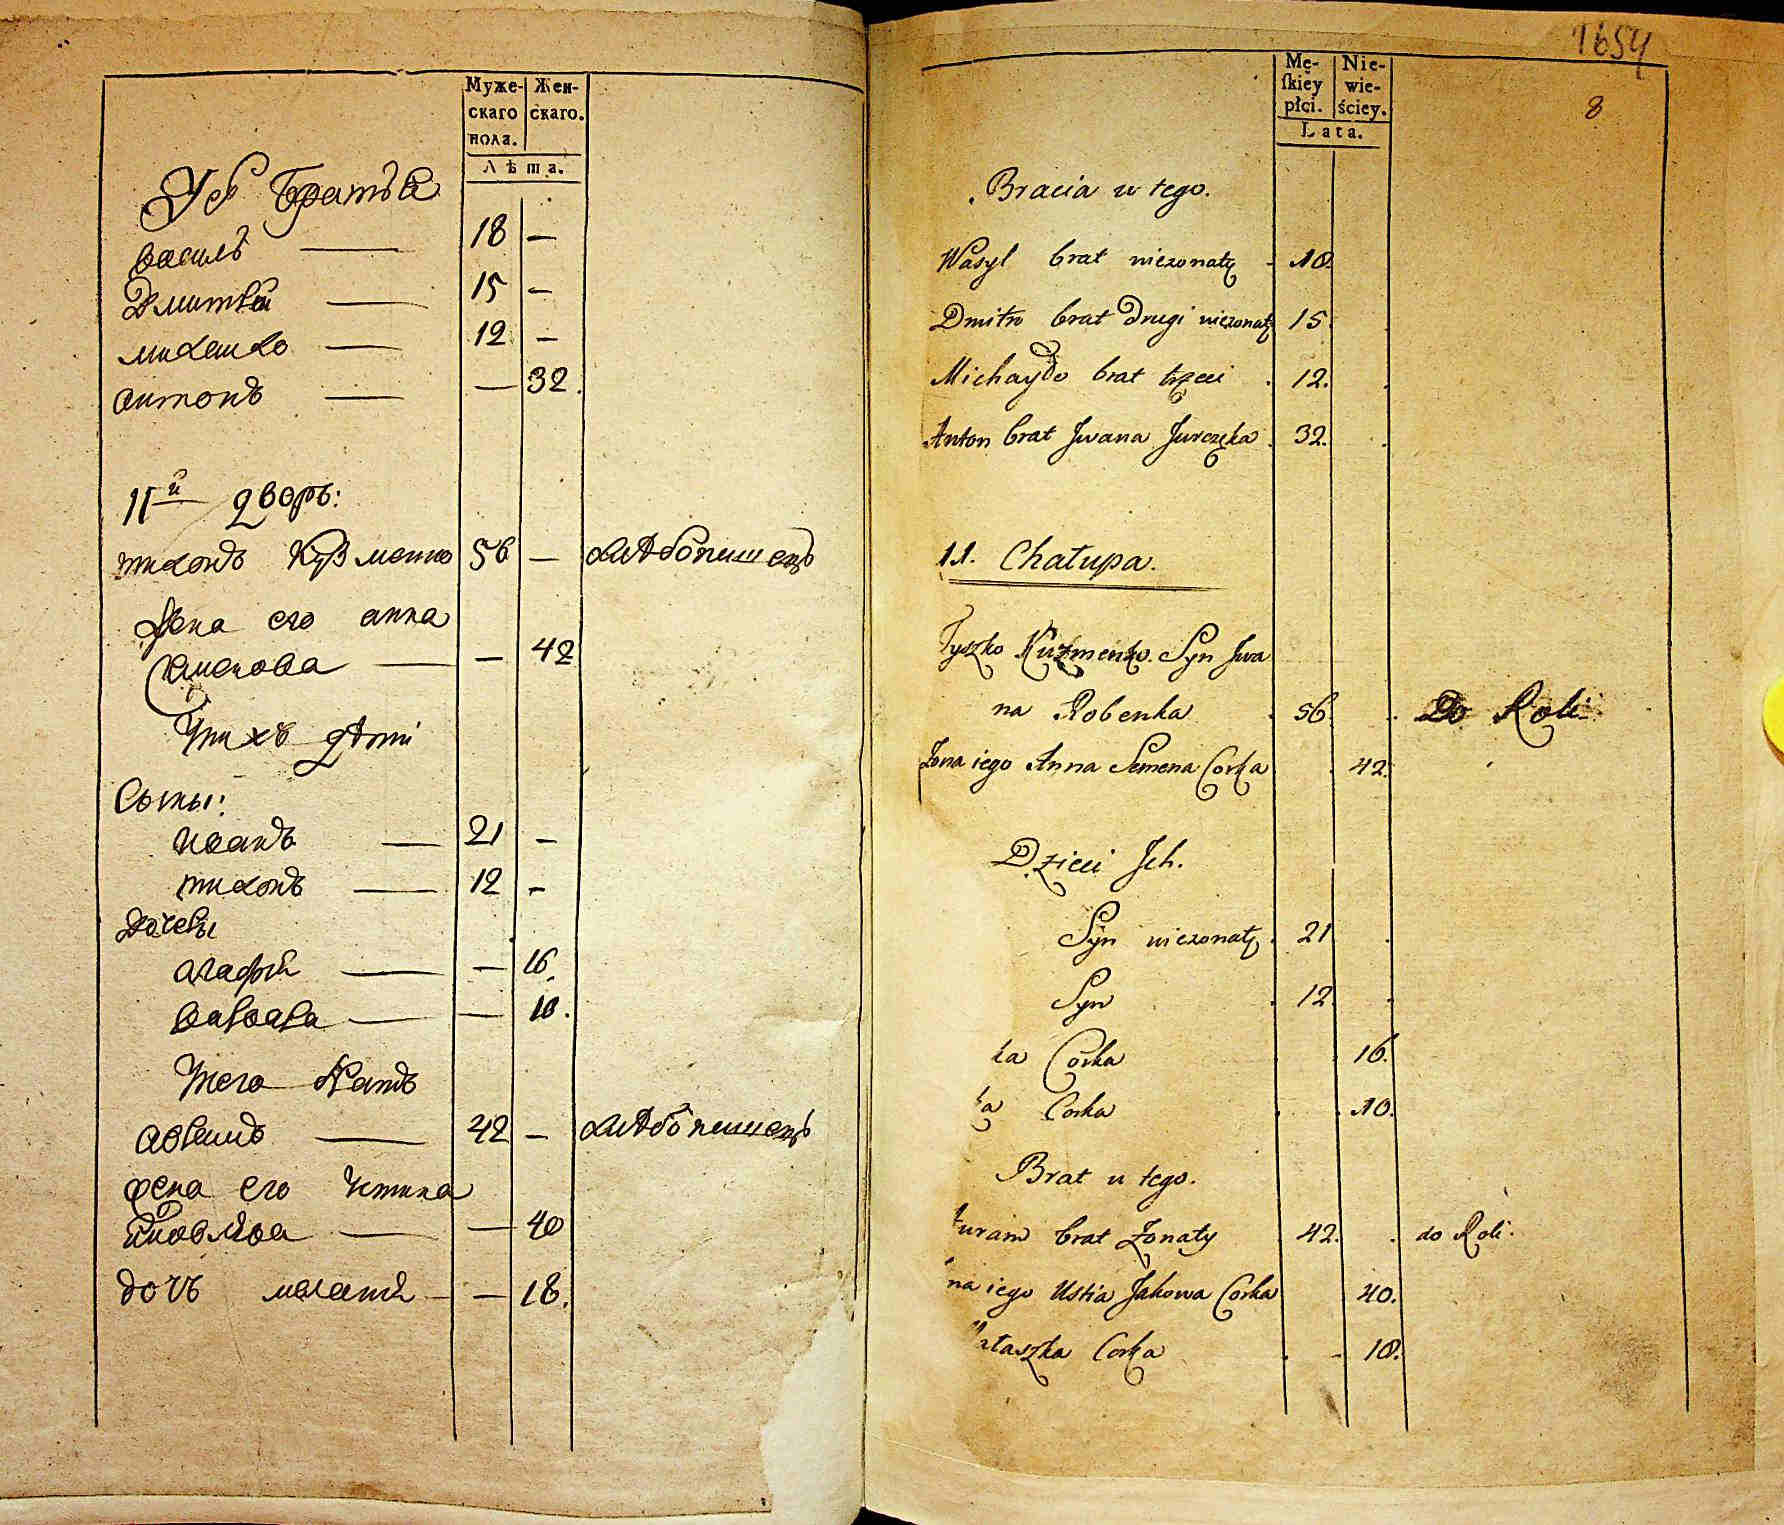 Муже-
скаго
пола.
Жен-
скаго.
Лѣта.
Братья
василь — 18 —
Дмитрей — 15 —
михайло — 12 —
антонъ — — 32.
11й дворъ:
тихонъ Кузменко 56 — хлѣбопашецъ
жена его анна
семенова — — 42
У ихъ дѣти
Сыны:
иванъ — 21 —
тихонъ — 12 —
дочеры
агафия — — 16.
варвара — — 10.
У тего братъ
аврамъ — 42 — хлѣбопашецъ
жена его Устина
яковлева — — 40
дочъ — — 18.
1654
8
Mę-
skiey
płci.
Nie-
wie-
ściey.
Lata.
Bracia u tego.
Wasyl brat nieżonaty 18.
Dmitro brat drugi nieżonaty 15.
Michayło brat trzeci 12.
Anton brat Jwana Jurczęka 32.
11. Chałupa.
Tyszko Kuzmenko Syn Jwa
na Robenka 56. Do Roli.
Żona iego Anna Semena Corka 42.
Dzieci Jch.
Syn nieżonaty 21
Syn 12.
ka Corka 16.
ka Corka 10.
Brat u tego.
uram brat Żonaty 42. do Roli.
na iego Ustia Jakowa Corka 40.
ałaszka Corka 18.